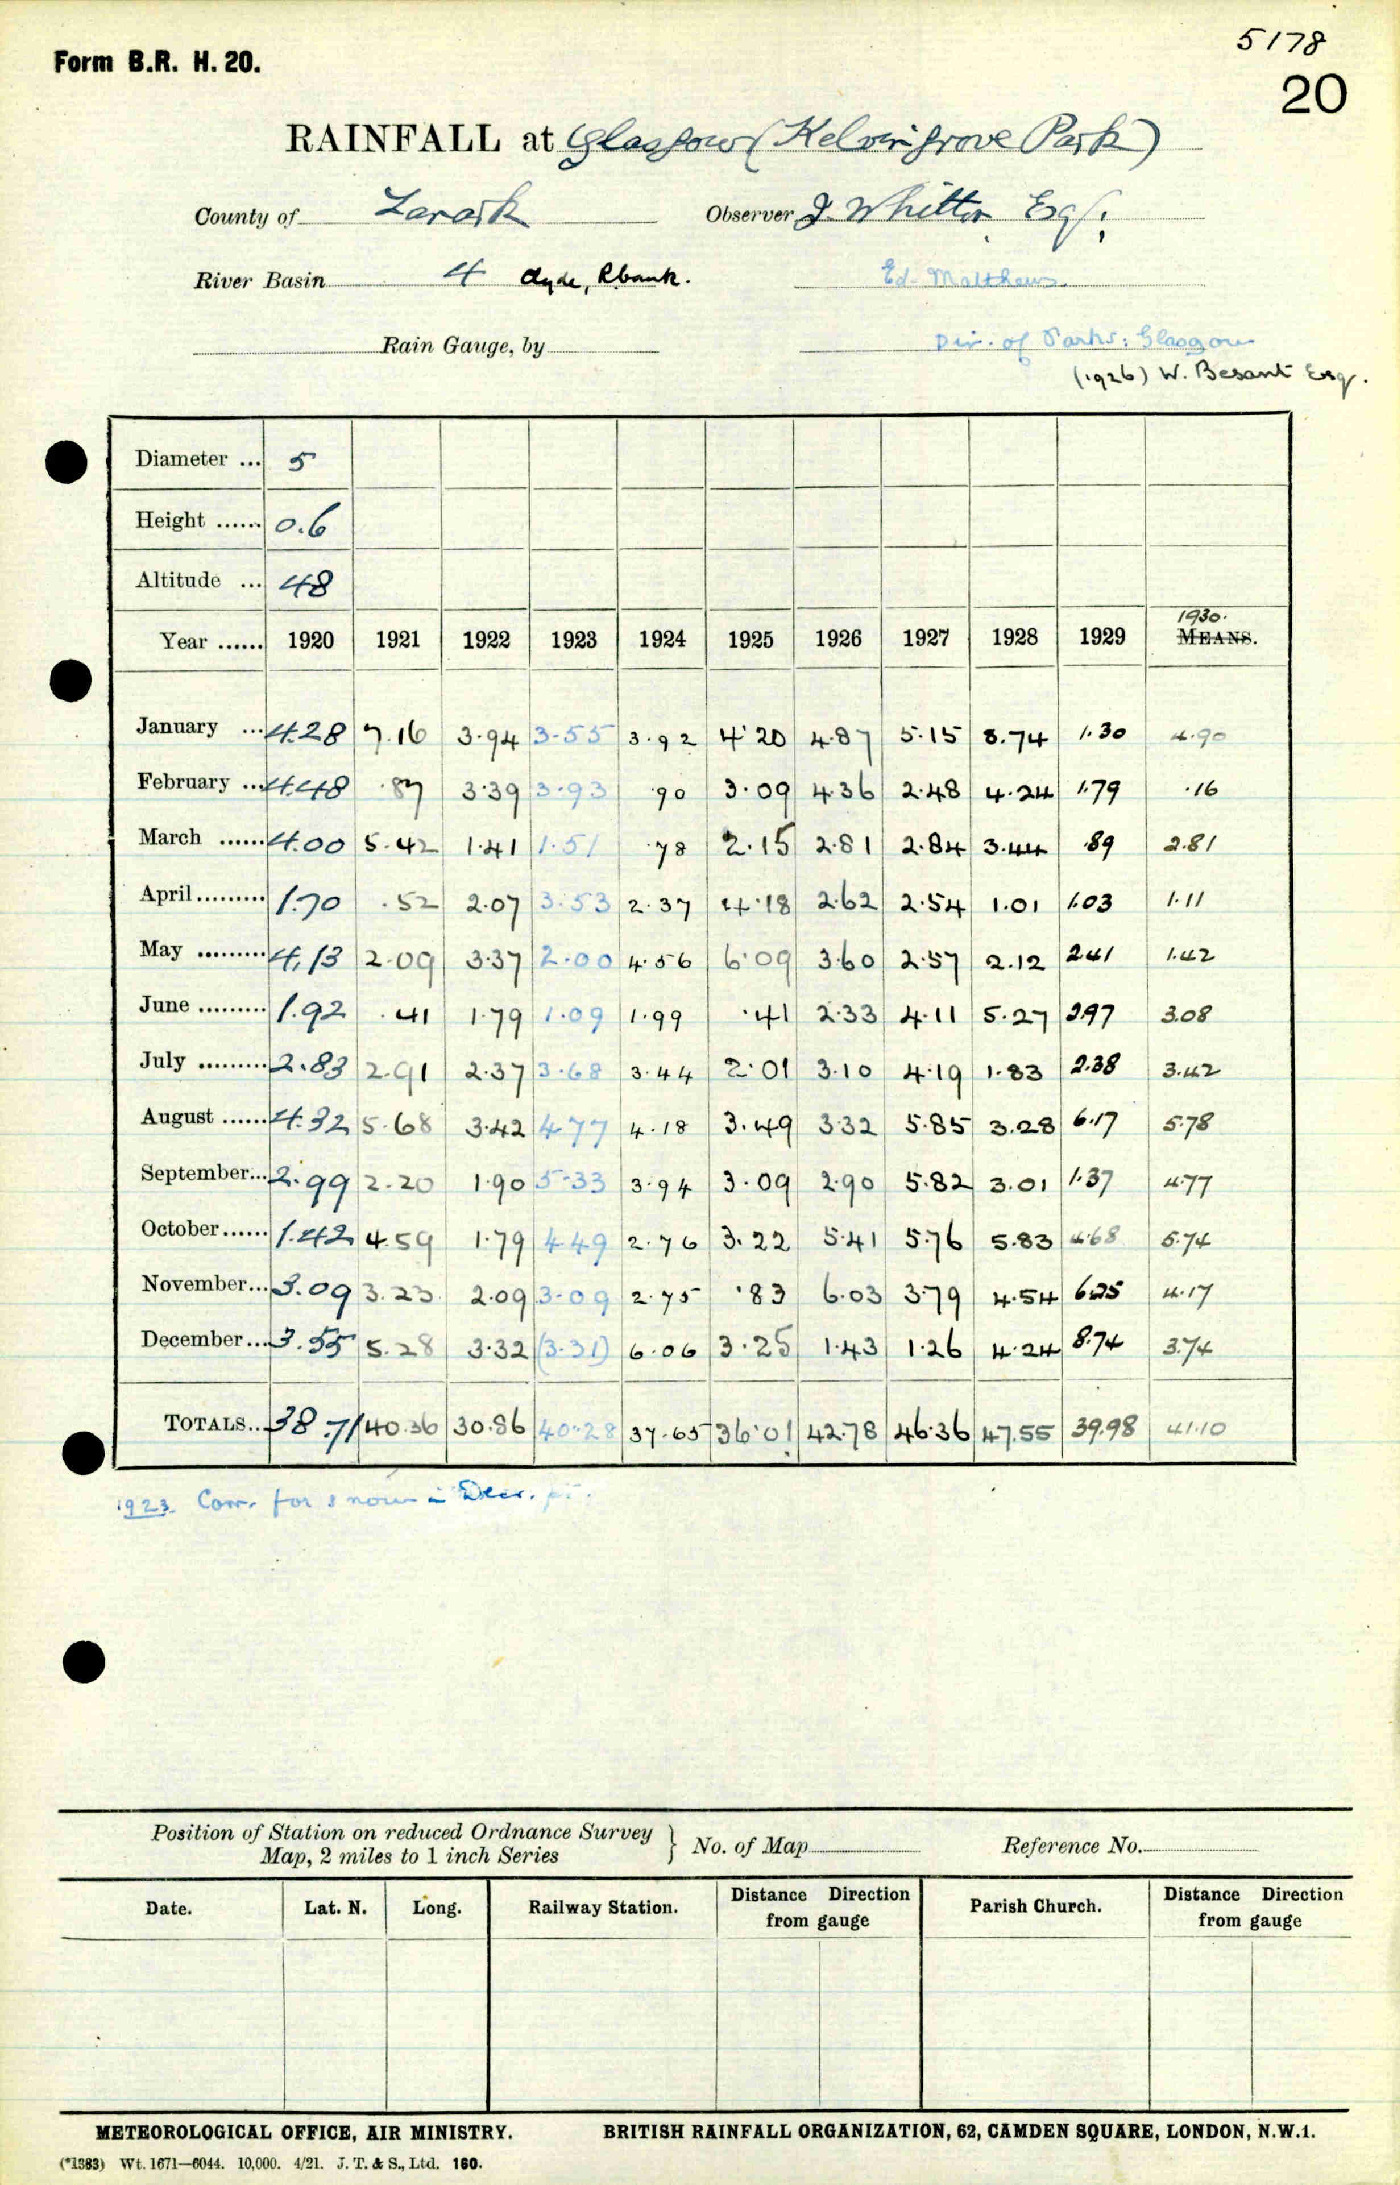 5178
Form B.R. H. 20.
20
RAINFALL at Glasgow (Kelvingrove Park)
County of Lanark Observer J. Whitton Esq.
River Basin 4 Clyde, Rbank. Ed. Matthews.
Rain Gauge, by Dir. of Parks: Glasgow
(1926) W. Besant Esq.
Diameter ... 5
Height ...... 0.6
Altitude ... 48
1930.
Year ...... 1920 1921 1922 1923 1924 1925 1926 1927 1928 1929 MEANS.
January ... 4.28 7.16 3.94 3.55 3.92 4.20 4.87 5.15 8.74 1.30 4.90
February ... 4.48 .87 3.39 3.93 .90 3.09 4.36 2.48 4.24 1.79 .16
March ...... 4.00 5.42 1.41 1.51 .78 2.15 2.81 2.84 3.44 .89 2.81
April......... 1.70 .52 2.07 3.53 2.37 4.18 2.62 2.54 1.01 1.03 1.11
May ......... 4.13 2.09 3.37 2.00 4.56 6.09 3.60 2.57 2.12 2.41 1.42
June ......... 1.92 .41 1.79 1.09 1.99 .41 2.33 4.11 5.27 2.97 3.08
July ......... 2.83 2.91 2.37 3.68 3.44 2.01 3.10 4.19 1.83 2.38 3.42
August ...... 4.32 5.68 3.42 4.77 4.18 3.49 3.32 5.85 3.28 6.17 5.78
September... 2.99 2.20 1.90 5.33 3.94 3.09 2.90 5.82 3.01 1.37 4.77
October...... 1.42 4.59 1.79 4.49 2.76 3.22 5.41 5.76 5.83 4.68 5.74
November... 3.09 3.23 2.09 3.09 2.75 .83 6.03 3.79 4.54 6.25 4.17
December... 3.55 5.28 3.32 (3.31) 6.06 3.25 1.43 1.26 4.24 8.74 3.74
TOTALS... 38.71 40.36 30.86 40.28 37.65 36.01 42.78 46.36 47.55 39.98 41.10
1923 Corr. for snow in Decr.
Position of Station on reduced Ordnance Survey
Map, 2 miles to 1 inch Series } No. of Map Reference No.
Date. Lat. N. Long. Railway Station. Distance Direction from gauge Parish Church. Distance Direction from gauge
METEOROLOGICAL OFFICE, AIR MINISTRY. BRITISH RAINFALL ORGANIZATION, 62, CAMDEN SQUARE, LONDON, N.W.1.
(*1383) Wt. 1671—6044. 10,000. 4/21. J. T. & S., Ltd. 160.